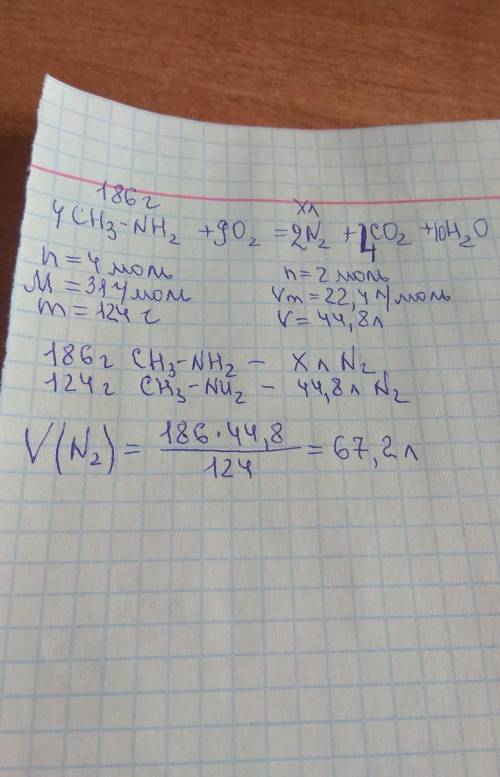 186 г хл
4CH₃-NH₂ + 9O₂ = 2N₂ + 4CO₂ + 10H₂O
n = 4 моль n = 2 моль
M = 31 г/моль Vm = 22,4 л/моль
m = 124 г V = 44,8 л
186 г CH₃-NH₂ - X л N₂
124 г CH₃-NH₂ - 44,8 л N₂
V(N₂) = 186·44,8 / 124 = 67,2 л